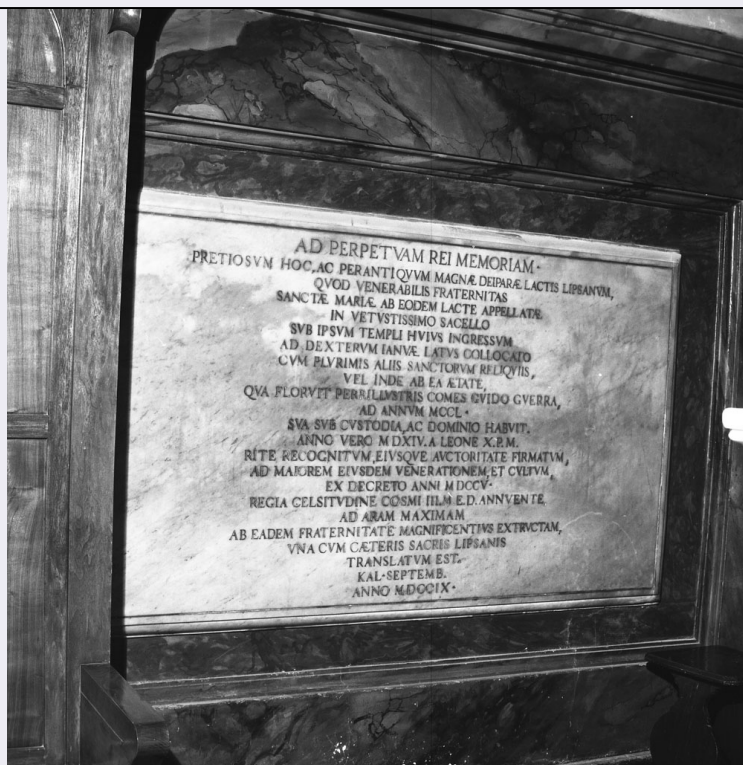 AD PERPETVAM REI MEMORIAM·
PRETIOSVM HOC, AC PERANTIQVVM MAGNÆ DEIPARÆ LACTIS LIPSANVM,
QVOD VENERABILIS FRATERNITAS
SANCTÆ MARIÆ AB EODEM LACTE APPELLATÆ
IN VETVSTISSIMO SACELLO
SVB IPSVM TEMPLI HVIVS INGRESSVM
AD DEXTERVM IANVÆ LATVS COLLOCATO
CVM PLVRIMIS ALIIS SANCTORVM RELIQVIIS,
VEL INDE AB EA ÆTATE,
QVA FLORVIT PERILLVSTRIS COMES GVIDO GVERRA,
AD ANNVM MCCL·
SVA SVB CVSTODIA, AC DOMINIO HABVIT.
ANNO VERO MDXIV. A LEONE X.P.M.
RITE RECOGNITVM, EIVSQVE AVCTORITATE FIRMATVM,
AD MAIOREM EIVSDEM VENERATIONEM, ET CVLTVM,
EX DECRETO ANNI MDCCV·
REGIA CELSITVDINE COSMI III.M.E.D. ANNVENTE
AD ARAM MAXIMAM
AB EADEM FRATERNITATE MAGNIFICENTIVS EXTRVCTAM,
VNA CVM CÆTERIS SACRIS LIPSANIS
TRANSLATVM EST.
KAL·SEPTEMB.
ANNO MDCCIX·